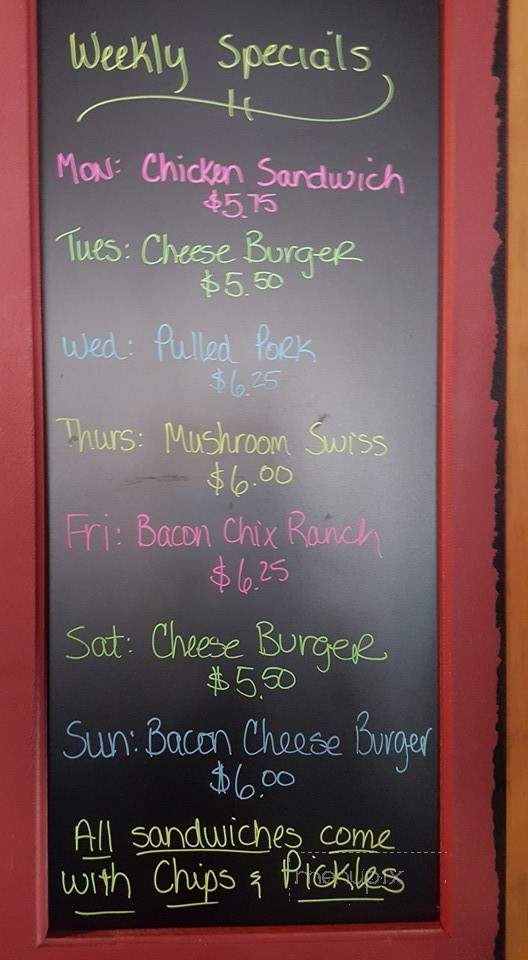 Weekly Specials
Mon: Chicken Sandwich
$5.75
Tues: Cheese Burger
$5.50
Wed: Pulled Pork
$6.25
Thurs: Mushroom Swiss
$6.00
Fri: Bacon Chix Ranch
$6.25
Sat: Cheese Burger
$5.50
Sun: Bacon Cheese Burger
$6.00
All sandwiches come
with Chips & Pickles
menupix